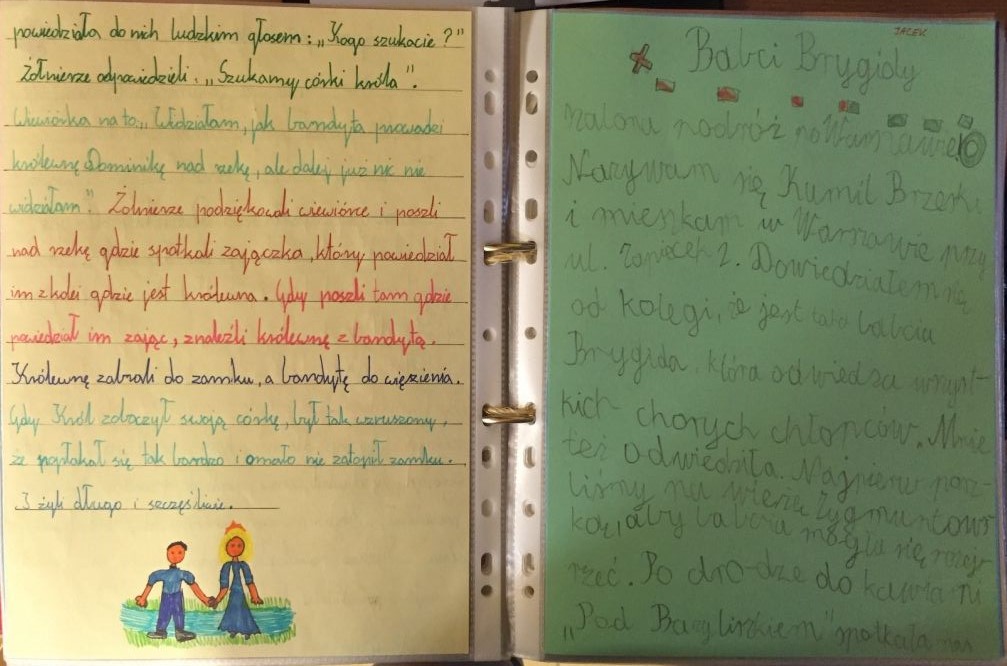 powiedziała do nich ludzkim głosem: „Kogo szukacie?”
Żołnierze odpowiedzieli: „Szukamy córki króla”.
Wiewiórka na to „Widziałam, jak bandyta prowadzi
królewnę Dominikę nad rzekę, ale dalej już nic nie
widziałam”. Żołnierze podziękowali wiewiórce i poszli
nad rzekę gdzie spotkali zajączka, który powiedział
im z kolei gdzie jest królewna. Gdy poszli tam gdzie
powiedział im zając, znaleźli królewnę z bandytą.
Królewnę zabrali do zamku, a bandytę do więzienia.
Gdy Król zobaczył swoją córkę, był tak wzruszony,
że popłakał się tak bardzo i omało nie zatopił zamku.
I żyli długo i szczęśliwie.
JACEK
Babci Brygidy
szalona podróż po Warszawie
Nazywam się Kamil Brzeski
i mieszkam w Warszawie przy
ul. Zapiecek 2. Dowiedziałem się
od kolegi, że jest taka babcia
Brygida, która odwiedza wszyst-
kich chorych chłopców. Mnie
też odwiedziła. Najpierw posz-
liśmy na wieżę Zygmuntows-
ką, aby babcia mogła się rozej-
rzeć. Po dro-dze do kawiarni
„Pod Bazyliszkiem” spotkała nas